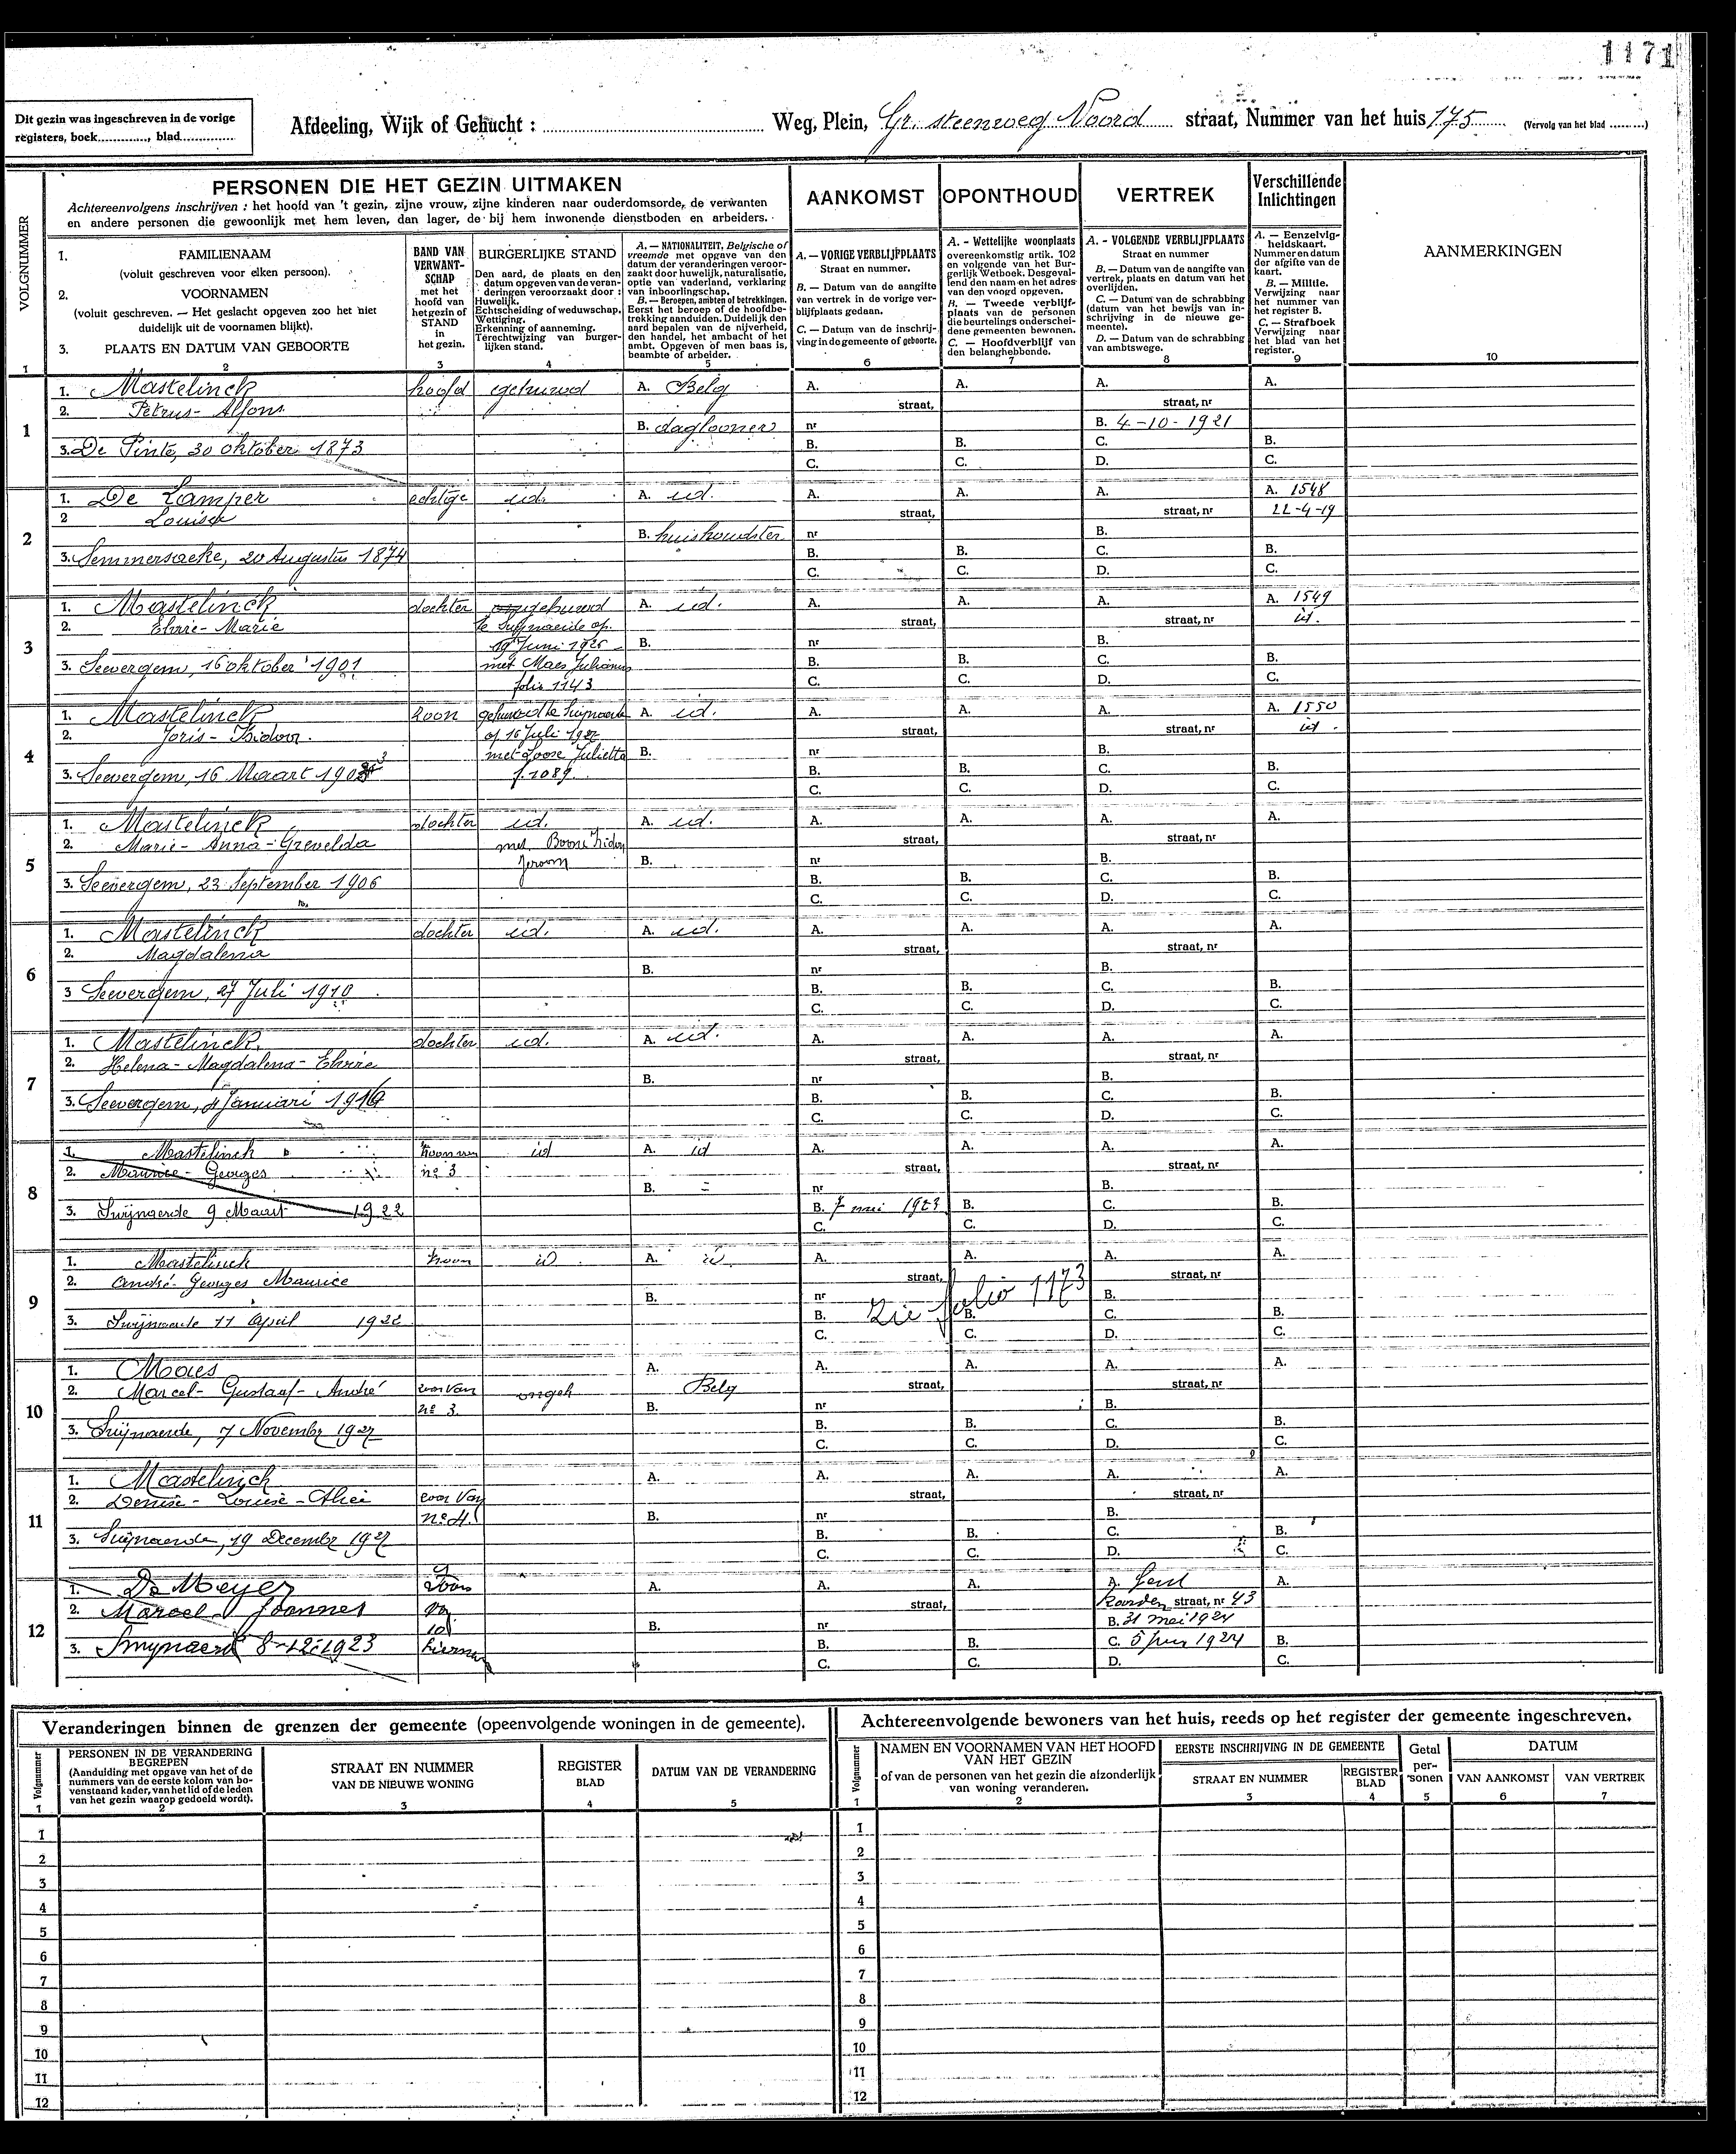 1171
Dit gezin was ingeschreven in de vorige
registers, boek............, blad...............
Afdeeling, Wijk of Gehucht : ........................ Weg, Plein, Gr. steenweg Noord straat, Nummer van het huis 175 (Vervolg van het blad .........)
VOLGNUMMER
PERSONEN DIE HET GEZIN UITMAKEN
Achtereenvolgens inschrijven : het hoofd van 't gezin, zijne vrouw, zijne kinderen naar ouderdomsorde, de verwanten
en andere personen die gewoonlijk met hem leven, dan lager, de bij hem inwonende dienstboden en arbeiders.
AANKOMST OPONTHOUD VERTREK Verschillende Inlichtingen
1. FAMILIENAAM
(voluit geschreven voor elken persoon).
2. VOORNAMEN
(voluit geschreven. — Het geslacht opgeven zoo het niet
duidelijk uit de voornamen blijkt).
3. PLAATS EN DATUM VAN GEBOORTE
BAND VAN
VERWANT-
SCHAP
met het
hoofd van
het gezin of
STAND
in
het gezin.
BURGERLIJKE STAND
Den aard, de plaats en den
datum opgeven van de veran-
deringen veroorzaakt door :
Huwelijk.
Echtscheiding of weduwschap.
Wettiging.
Erkenning of aanneming.
Terechtwijzing van burger-
lijken stand.
A. — NATIONALITEIT, Belgische of
vreemde met opgave van den
datum der veranderingen veroor-
zaakt door huwelijk, naturalisatie,
optie van vaderland, verklaring
van inboorlingschap.
B. — Beroepen, ambten of betrekkingen.
Eerst het beroep of de hoofdbe-
trekking aanduiden. Duidelijk den
aard bepalen van de nijverheid,
den handel, het ambacht of het
ambt. Opgeven of men baas is,
beambte of arbeider.
A. — VORIGE VERBLIJFPLAATS
Straat en nummer.
B. — Datum van de aangifte
van vertrek in de vorige ver-
blijfplaats gedaan.
C. — Datum van de inschrij-
ving in de gemeente of geboorte.
A. - Wettelijke woonplaats
overeenkomstig artik. 102
en volgende van het Bur-
gerlijk Wetboek. Desgeval-
lend den naam en het adres
van den voogd opgeven.
B. — Tweede verblijf-
plaats van de personen
die beurtelings onderschei-
dene gemeenten bewonen.
C. — Hoofdverblijf van
den belanghebbende.
A. - VOLGENDE VERBLIJFPLAATS
Straat en nummer
B. — Datum van de aangifte van
vertrek, plaats en datum van het
overlijden.
C. — Datum van de schrabbing
(datum van het bewijs van in-
schrijving in de nieuwe ge-
meente).
D. — Datum van de schrabbing
van ambtswege.
A. — Eenzelvig-
heidskaart.
Nummer en datum
der afgifte van de
kaart.
B. — Militie.
Verwijzing naar
het nummer van
het register B.
C. — Strafboek
Verwijzing naar
het blad van het
register.
AANMERKINGEN
1 2 3 4 5 6 7 8 9 10
1
1. Mastelinck hoofd gehuwd A. Belg A. A. A. A.
2. Petrus - Alfons straat, straat, nr
B. daglooner nr B. 4-10-1921
3. De Pinte, 30 oktober 1873 B. B. C. B.
C. C. D. C.
2
1. De Lamper echtge id. A. id. A. A. A. A. 1548
2 Louisa straat, straat, nr 22-4-19
B. huishoudster nr B.
3. Semmersaeke, 20 Augustus 1874 B. B. C. B.
C. C. D. C.
3
1. Mastelinck dochter gehuwd A. id. A. A. A. A. 1549
2. Elvire - Marie te Swijnaerde op straat, straat, nr id.
19 Juni 1926 B. nr B.
3. Seevergem, 16 oktober 1901 met Maes Julianus B. B. C. B.
folio 1143 C. C. D. C.
4
1. Mastelinck zoon gehuwd te Swijnaerde A. id. A. A. A. A. 1550
2. Joris - Isidoor. op 16 Juli 1927 straat, straat, nr id.
met Loose Julietta B. nr B.
3. Seevergem, 16 Maart 1903 f. 1089. B. B. C. B.
C. C. D. C.
5
1. Mastelinck dochter id. A. id. A. A. A. A.
2. Marie - Anna - Grevelda met Boone Isidoor straat, straat, nr
Jeroom B. nr B.
3. Seevergem, 23 September 1906 B. B. C. B.
C. C. D. C.
6
1. Mastelinck dochter id. A. id. A. A. A. A.
2. Magdalena straat, straat, nr
B. nr B.
3 Seevergem, 27 Juli 1910 B. B. C. B.
C. C. D. C.
7
1. Mastelinck dochter id. A. id. A. A. A. A.
2. Helena - Magdalena - Elvire straat, straat, nr
B. nr B.
3. Seevergem, 4 Januari 1916 B. B. C. B.
C. C. D. C.
8
1. Mastelinck zoon van id A. id A. A. A. A.
2. Maurice - Georges nº 3 straat, straat, nr
B. = nr B.
3. Swijnaerde 9 Maart 1922 B. 7 mei 1923 B. C. B.
C. C. D. C.
9
1. Mastelinck zoon id A. id. A. A. A. A.
2. André - Georges Maurice straat, straat, nr
B. nr Zie folio 1173 B.
3. Swijnaerde 11 April 1922 B. B. C. B.
C. C. D. C.
10
1. Maes A. A. A. A. A.
2. Marcel - Gustaaf - André zoon van ongeh Belg straat, straat, nr
nº 3. B. nr B.
3. Swijnaerde, 7 November 1927 B. B. C. B.
C. C. D. C.
11
1. Mastelinck A. A. A. A. A.
2. Denise - Louise - Alice van
nº 4. B. nr straat, straat, nr B.
3. Swijnaerde, 19 December 1927 B. B. C. B.
C. C. D. C.
12
1. De Meyer zoon A. A. A. A. Gent A.
2. Marcel Joannes van straat, straat, nr 43
10 B. nr B. 31 mei 1924
3. Swynaerd 8-12-1923 B. B. C. 5 juni 1924 B.
C. C. D. C.
Veranderingen binnen de grenzen der gemeente (opeenvolgende woningen in de gemeente).
Volgnummer
PERSONEN IN DE VERANDERING
BEGREPEN
(Aanduiding met opgave van het of de
nummers van de eerste kolom van bo-
venstaand kader, van het lid of de leden
van het gezin waarop gedoeld wordt).
STRAAT EN NUMMER
VAN DE NIEUWE WONING
REGISTER
BLAD
DATUM VAN DE VERANDERING
1 2 3 4 5
1
2
3
4
5
6
7
8
9
10
11
12
Achtereenvolgende bewoners van het huis, reeds op het register der gemeente ingeschreven.
Volgnummer
NAMEN EN VOORNAMEN VAN HET HOOFD
VAN HET GEZIN
of van de personen van het gezin die afzonderlijk
van woning veranderen.
EERSTE INSCHRIJVING IN DE GEMEENTE
STRAAT EN NUMMER
REGISTER
BLAD
Getal
per-
sonen
DATUM
VAN AANKOMST VAN VERTREK
1 2 3 4 5 6 7
1
2
3
4
5
6
7
8
9
10
11
12